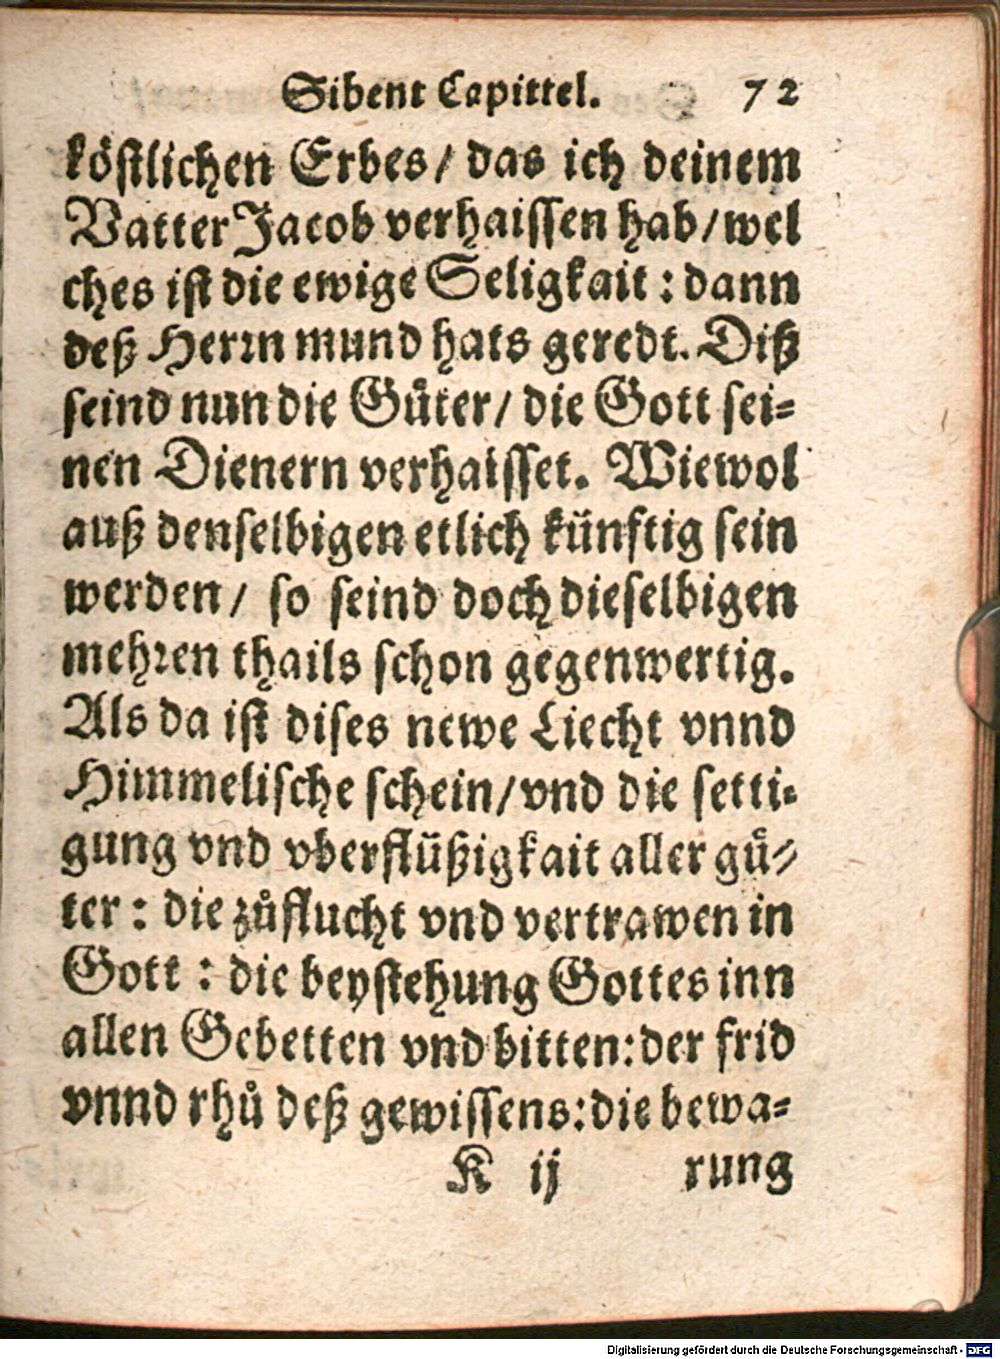 Sibent Capittel. 72
köstlichen Erbes/ das ich deinem
Vatter Jacob verhaissen hab/wel
ches ist die ewige Seligkait: dann
deß Herrn mund hats geredt. Diß
seind nun die Gůter/ die Gott sei⸗
nen Dienern verhaisset. Wiewol
auß denselbigen etlich künftig sein
werden/ so seind doch dieselbigen
mehren thails schon gegenwertig.
Als da ist dises newe Liecht vnnd
Himmelische schein/vnd die setti⸗
gung vnd vberflüßigkait aller guͤ⸗
ter: die zůflucht vnd vertrawen in
Gott: die beystehung Gottes inn
allen Gebetten vnd bitten: der frid
vnnd rhů deß gewissens: die bewa⸗
K ij rung
Digitalisierung gefördert durch die Deutsche Forschungsgemeinschaft - DFG